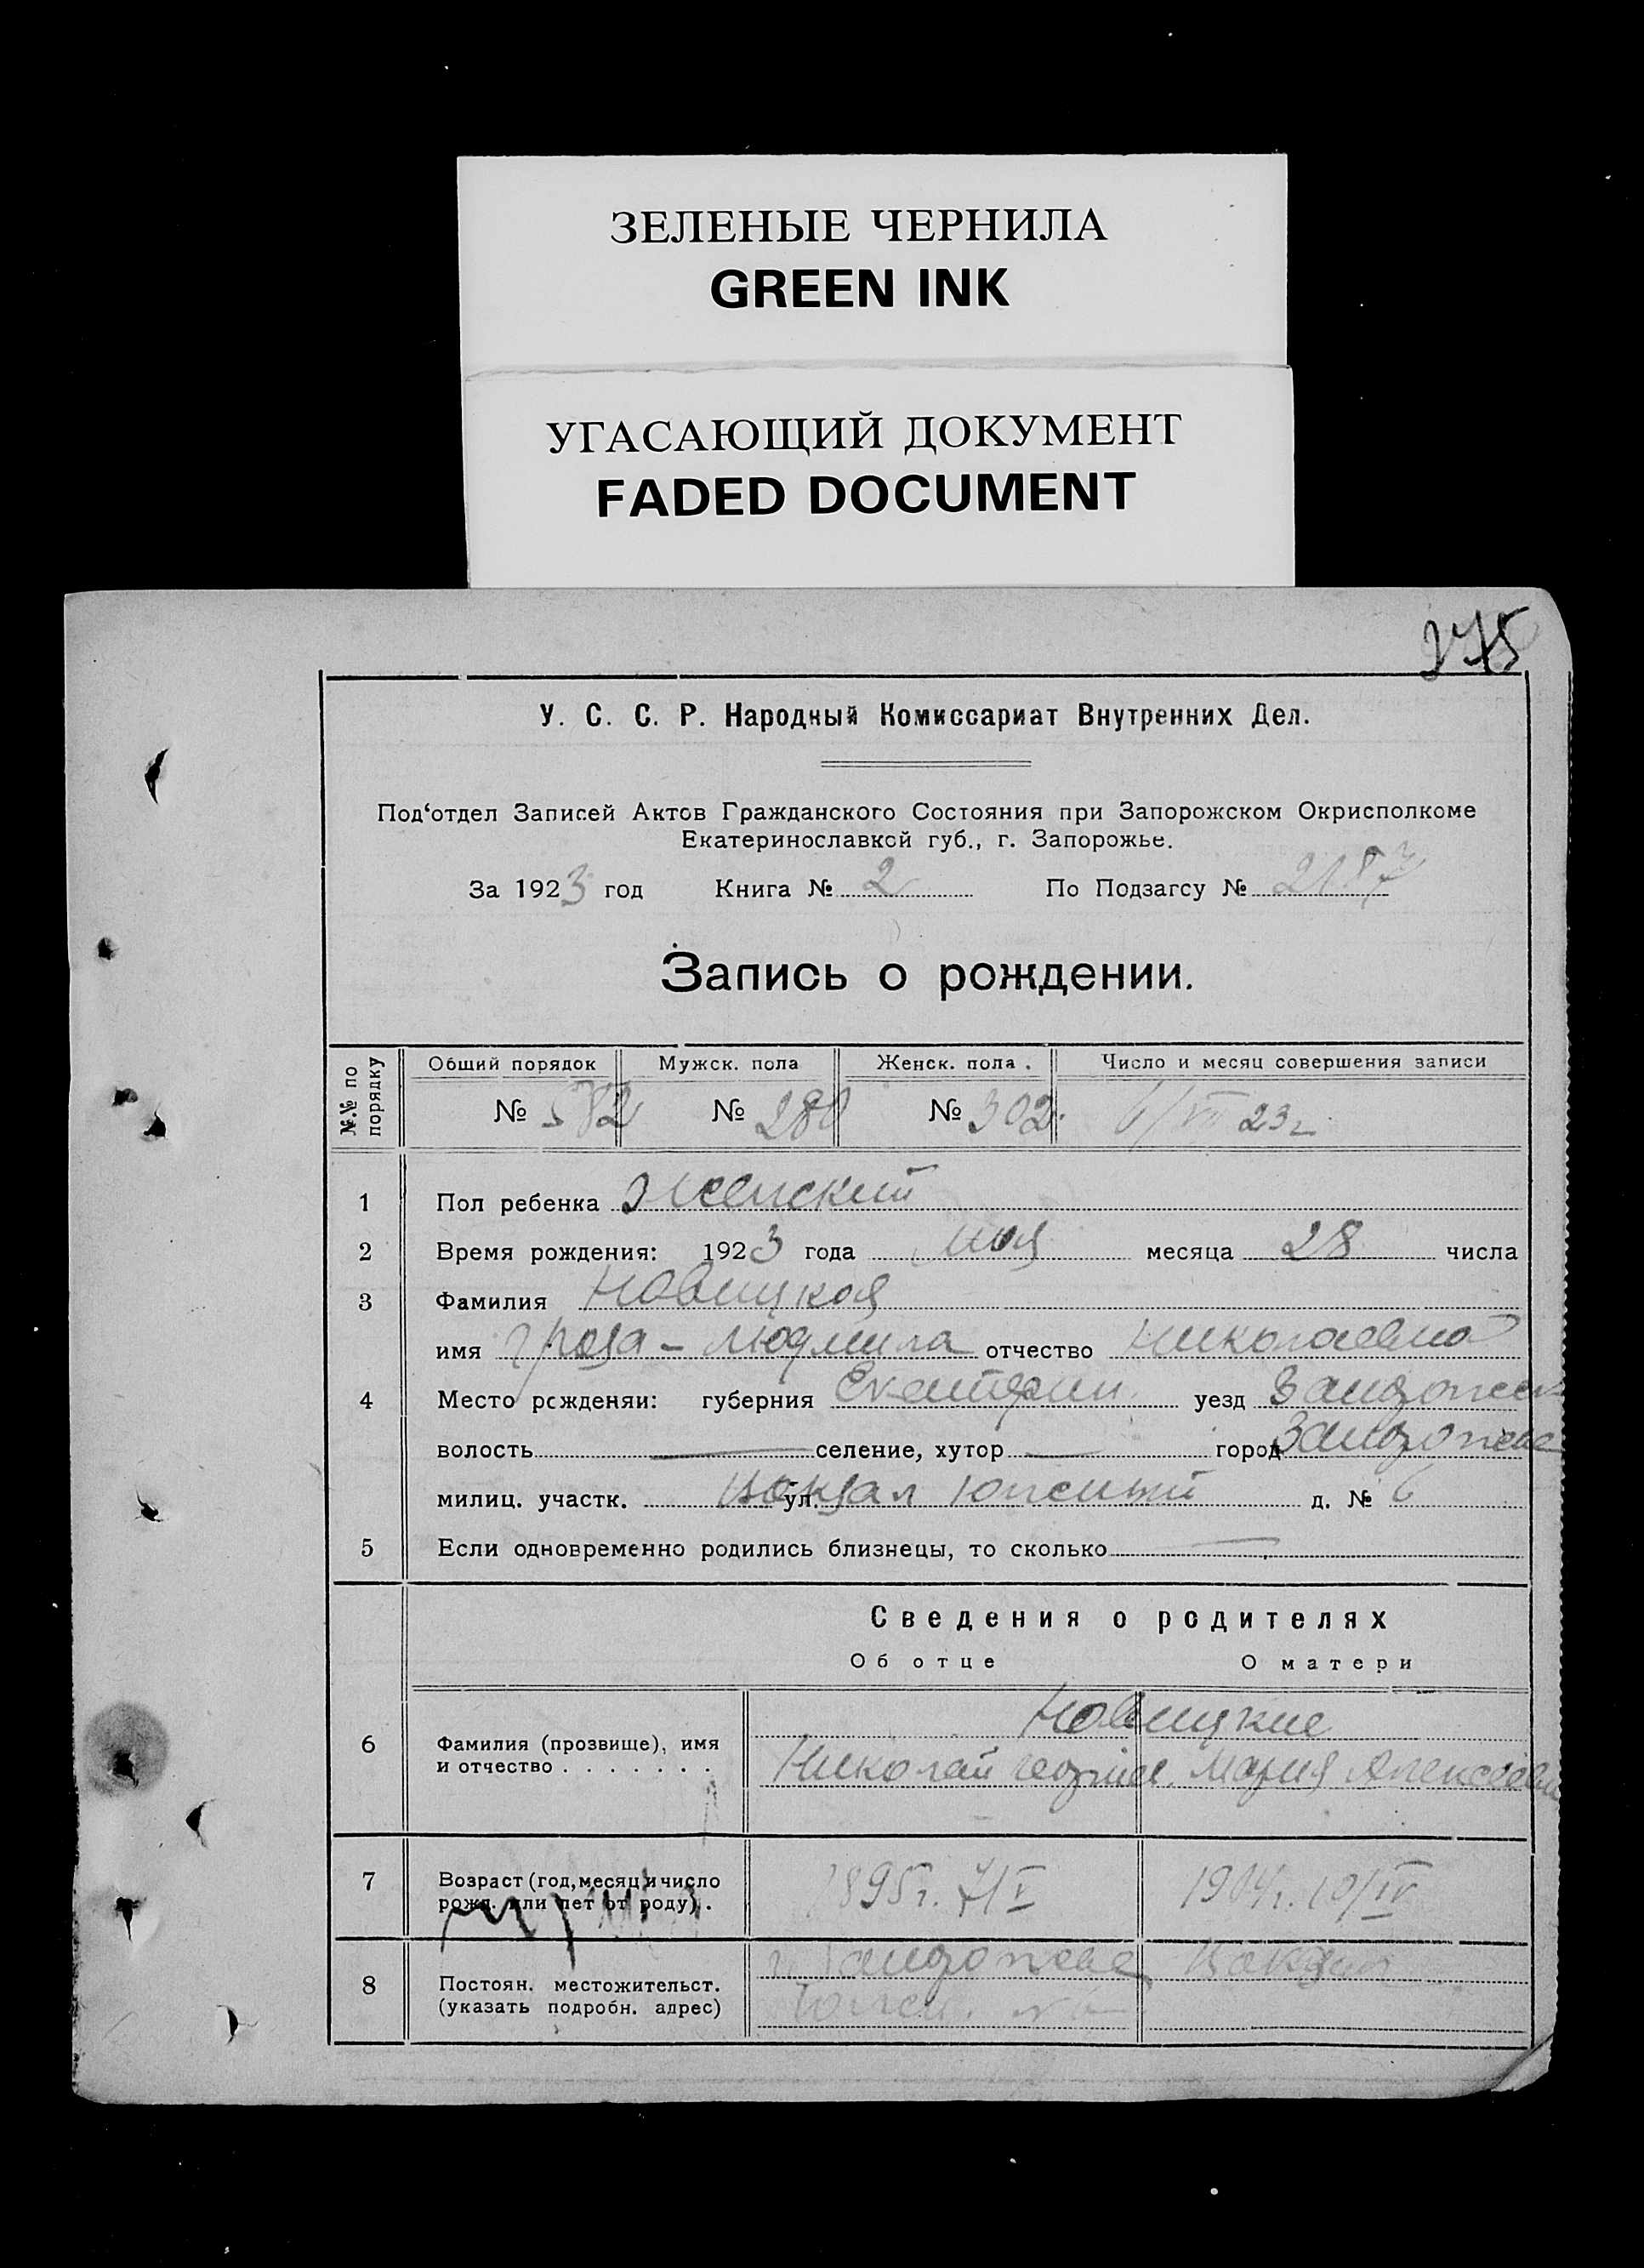 ЗЕЛЕНЫЕ ЧЕРНИЛА
GREEN INK
УГАСАЮЩИЙ ДОКУМЕНТ
FADED DOCUMENT
275
У. С. С. Р. Народный Комиссариат Внутренних Дел.
Под‘отдел Записей Актов Гражданского Состояния при Запорожском Окрисполкоме
Екатеринославкой губ., г. Запорожье.
За 1923 год Книга № 2 По Подзагсу №
Запись о рождении.
№.№ по порядку Общий порядок Мужск. пола Женск. пола. Число и месяц совершения записи
№ 582 № 280 № 302. 6/VI 23 г
1 Пол ребенка Женский
2 Время рождения: 1923 года мая месяца 28 числа
3 Фамилия Новицкая
имя Роза - Людмила отчество Николаевна
4 Место рожденяи: губерния Екатерин. уезд Запорожск
волость — селение, хутор — город Запорожье
милиц. участк. ул. Вокзал Южный д. № 6
5 Если одновременно родились близнецы, то сколько —
Сведения о родителях
Об отце О матери
Новицкие
6 Фамилия (прозвище), имя и отчество . . . . . . . Николай Георгиев. Мария Алексеевна
7 Возраст (год, месяц и число рожд. или лет от роду) . 1895 г. 7/V 1904 г. 10/IV
8 Постоян. местожительст. (указать подробн. адрес) г. Запорожье, Вокзал
Южн. №